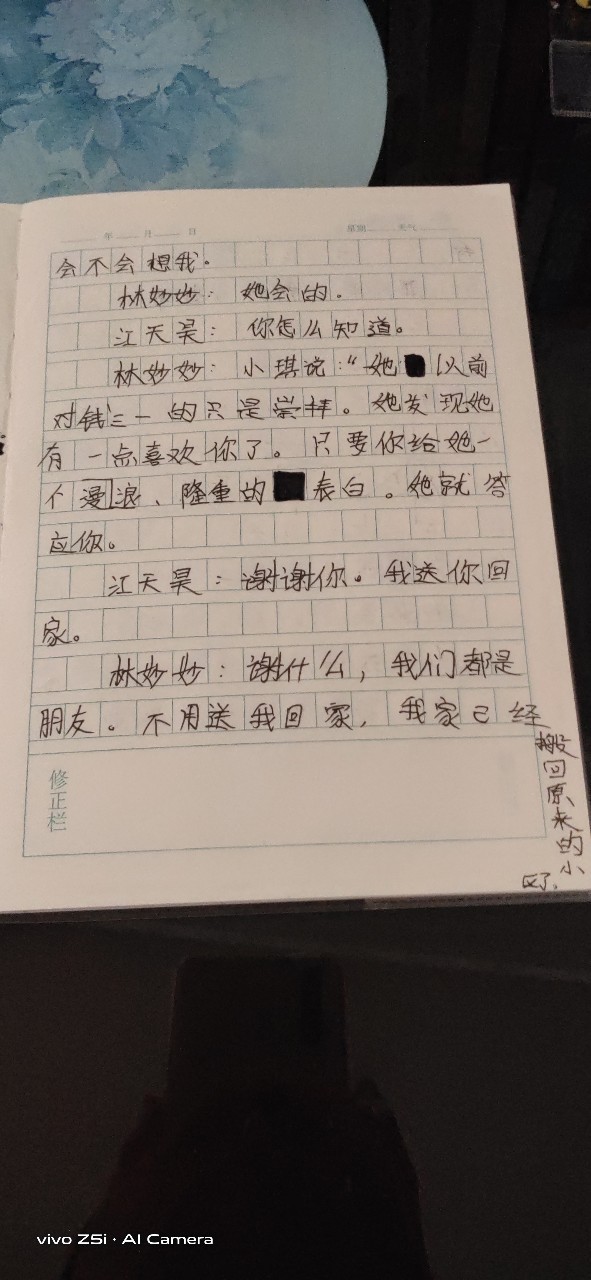 年 月 日 星期 天气
会不会想我。
林妙妙：她会的。
江天昊：你怎么知道。
林妙妙：小琪说：“她以前
对钱三一的只是崇拜。她发现她
有一点喜欢你了。只要你给她一
个漫浪、隆重的表白。她就答
应你。
江天昊：谢谢你。我送你回
家。
林妙妙：谢什么，我们都是
朋友。不用送我回家，我家已经
搬回原来的小
区了.
修正栏
vivo Z5i · AI Camera